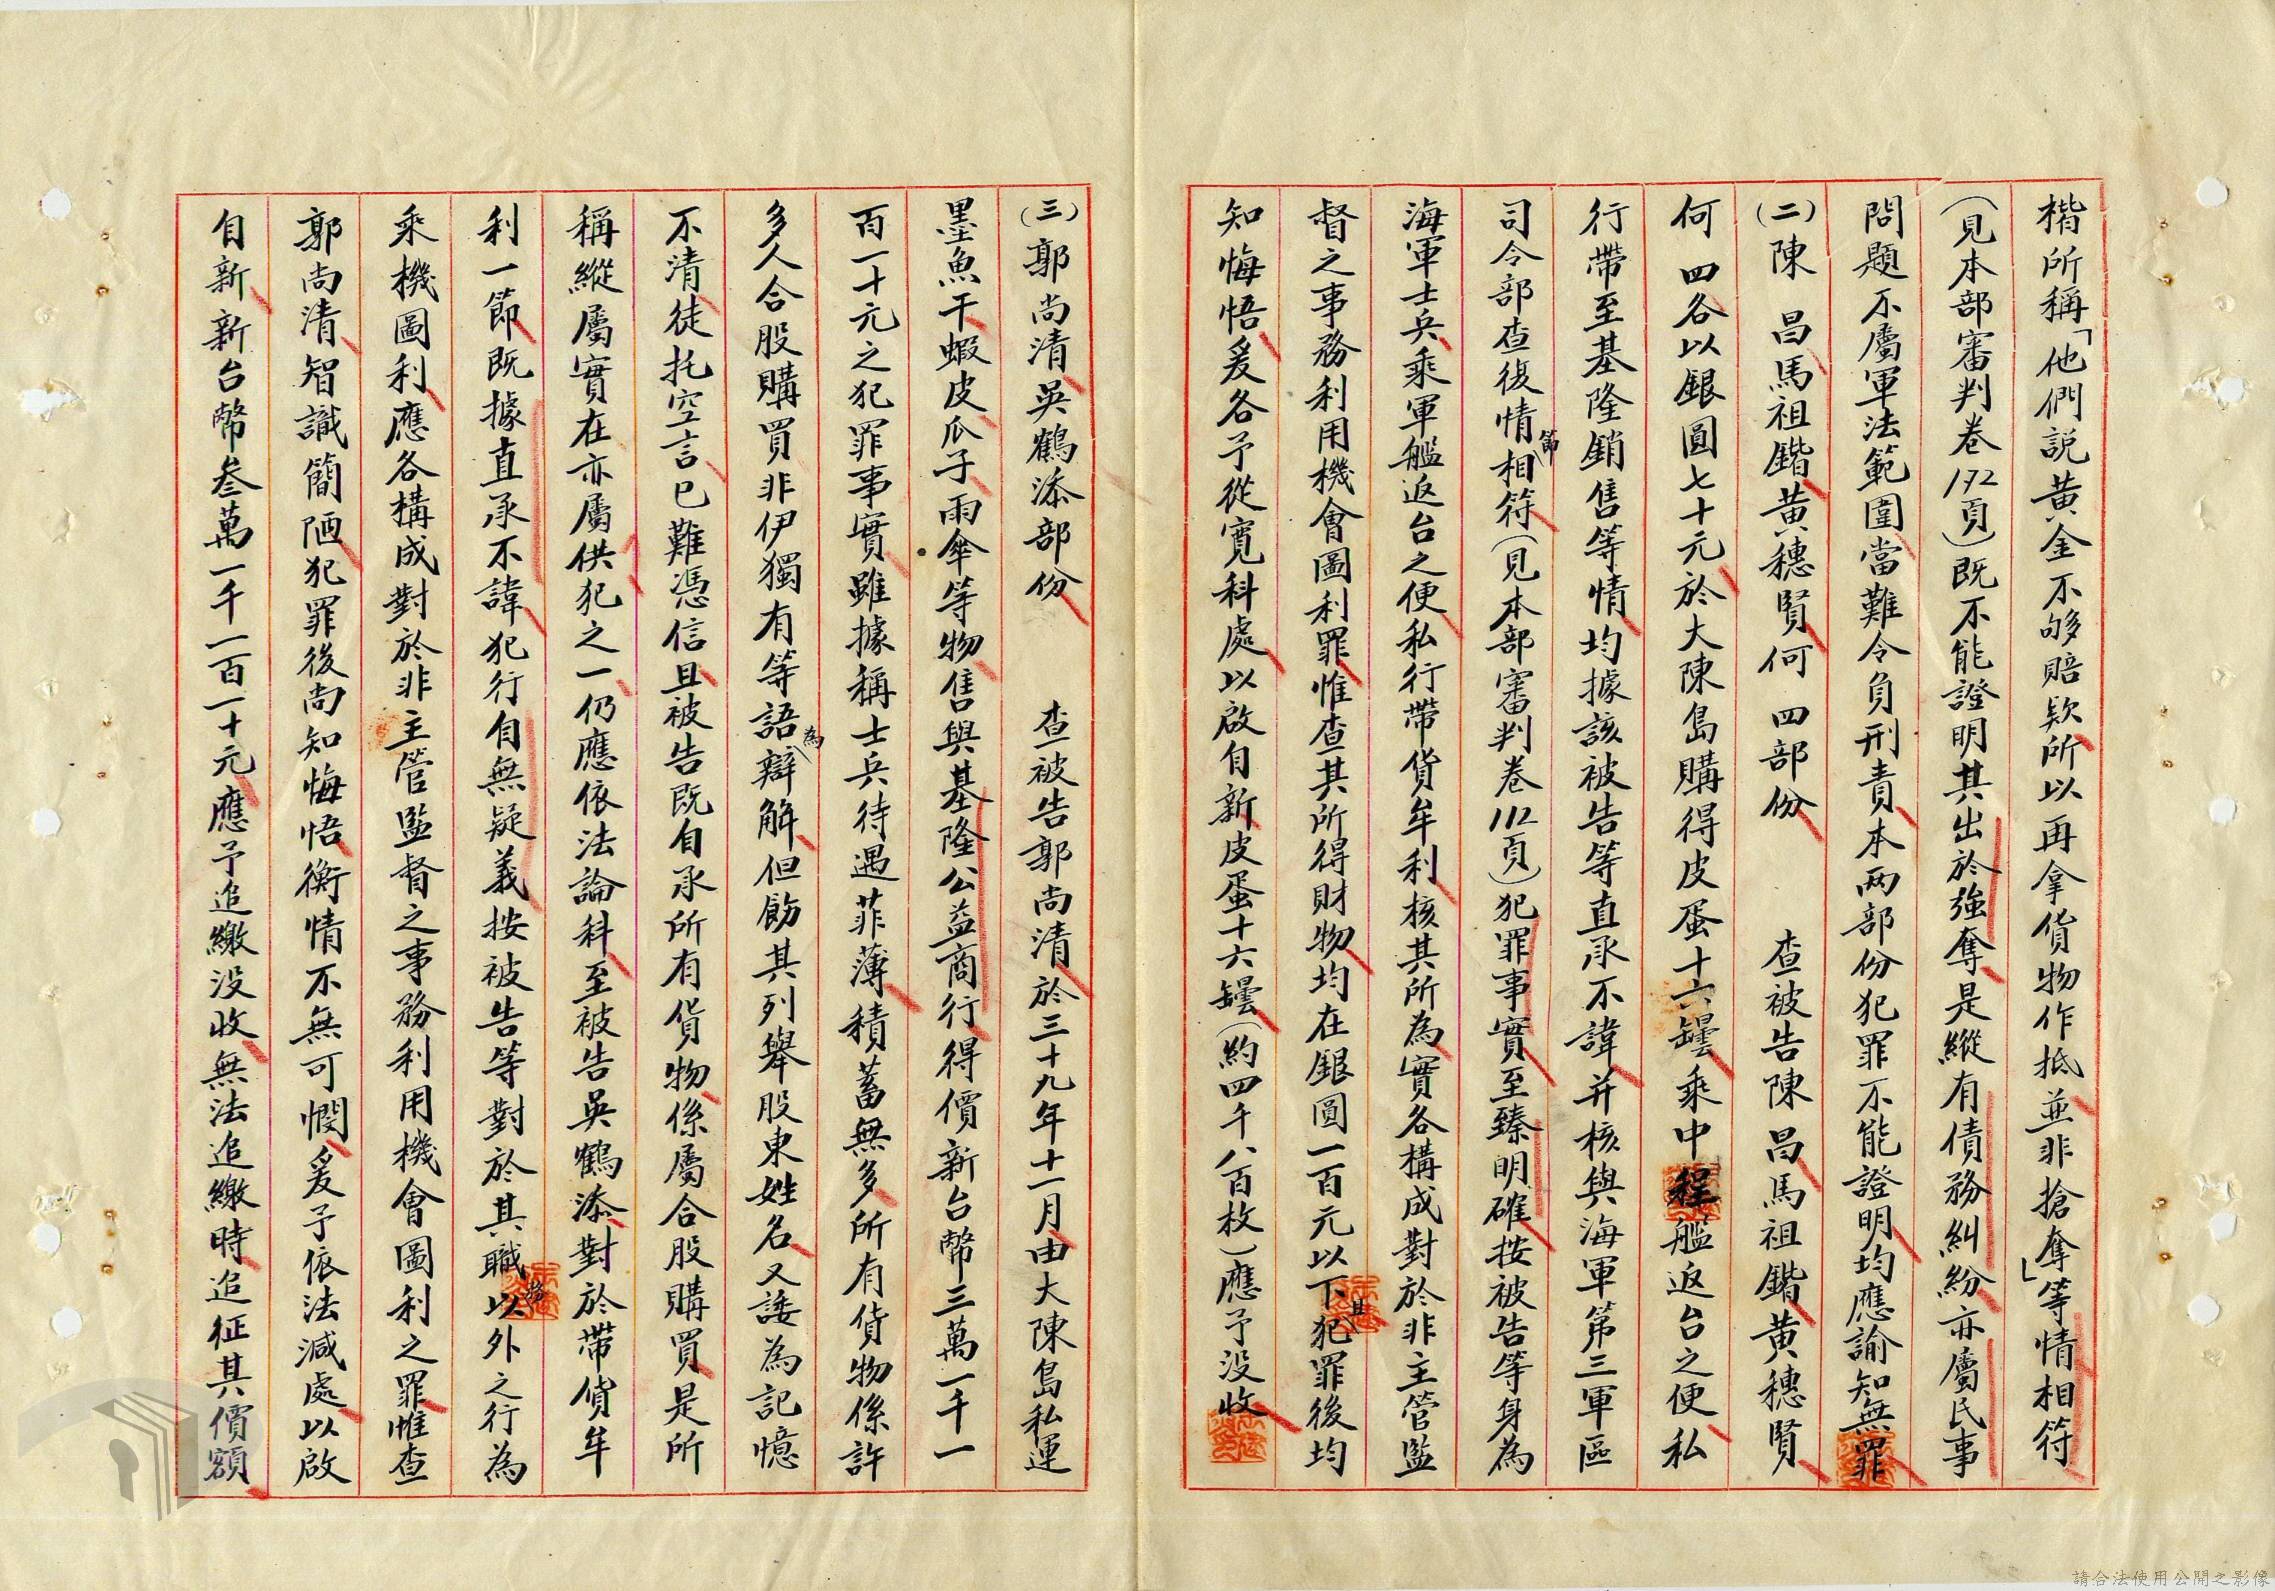 楷所稱「他們說黃金不够賠欵所以再拿貨物作抵並非搶奪」等情相符
(見本部審判卷172頁)既不能證明其出於強奪是縱有債務糾紛亦屬民事
問題不屬軍法範圍當難令負刑責本兩部份犯罪不能證明均應諭知無罪
(二)陳昌馬祖鍇黃穗賢何四部份 查被告陳昌馬祖鍇黃穗賢
何四各以銀圓七十元於大陳島購得皮蛋十六罎乘中程艦返台之便私
行帶至基隆銷售等情均據該被告等直承不諱并核與海軍第三軍區
司令部查復情節相符(見本部審判卷112頁)犯罪事實至臻明確按被告等身為
海軍士兵乘軍艦返台之便私行帶貨牟利核其所為實各構成對於非主管監
督之事務利用機會圖利罪惟查其所得財物均在銀圓一百元以下且犯罪後均
知悔悟爰各予從寬科處以啟自新皮蛋十六罎(約四千八百枚)應予没收
(三)郭尚清吳鶴添部份 查被告郭尚清於三十九年十一月由大陳島私運
墨魚干蝦皮瓜子雨傘等物售與基隆公益商行得價新台幣三萬一千一
百一十元之犯罪事實雖據稱士兵待遇菲薄積蓄無多所有貨物係許
多人合股購買非伊獨有等語為辯解但飭其列舉股東姓名又諉為記憶
不清徒托空言已難憑信且被告既自承所有貨物係屬合股購買是所
稱縱屬實在亦屬供犯之一仍應依法論科至被告吳鶴添對於帶貨牟
利一節既據直承不諱犯行自無疑義按被告等對於其職務以外之行為
乘機圖利應各構成對於非主管監督之事務利用機會圖利之罪惟查
郭尚清智識簡陋犯罪後尚知悔悟衡情不無可憫爰予依法減處以啟
自新新台幣叁萬一千一百一十元應予追繳没收無法追繳時追征其價額
請合法使用公開之影像